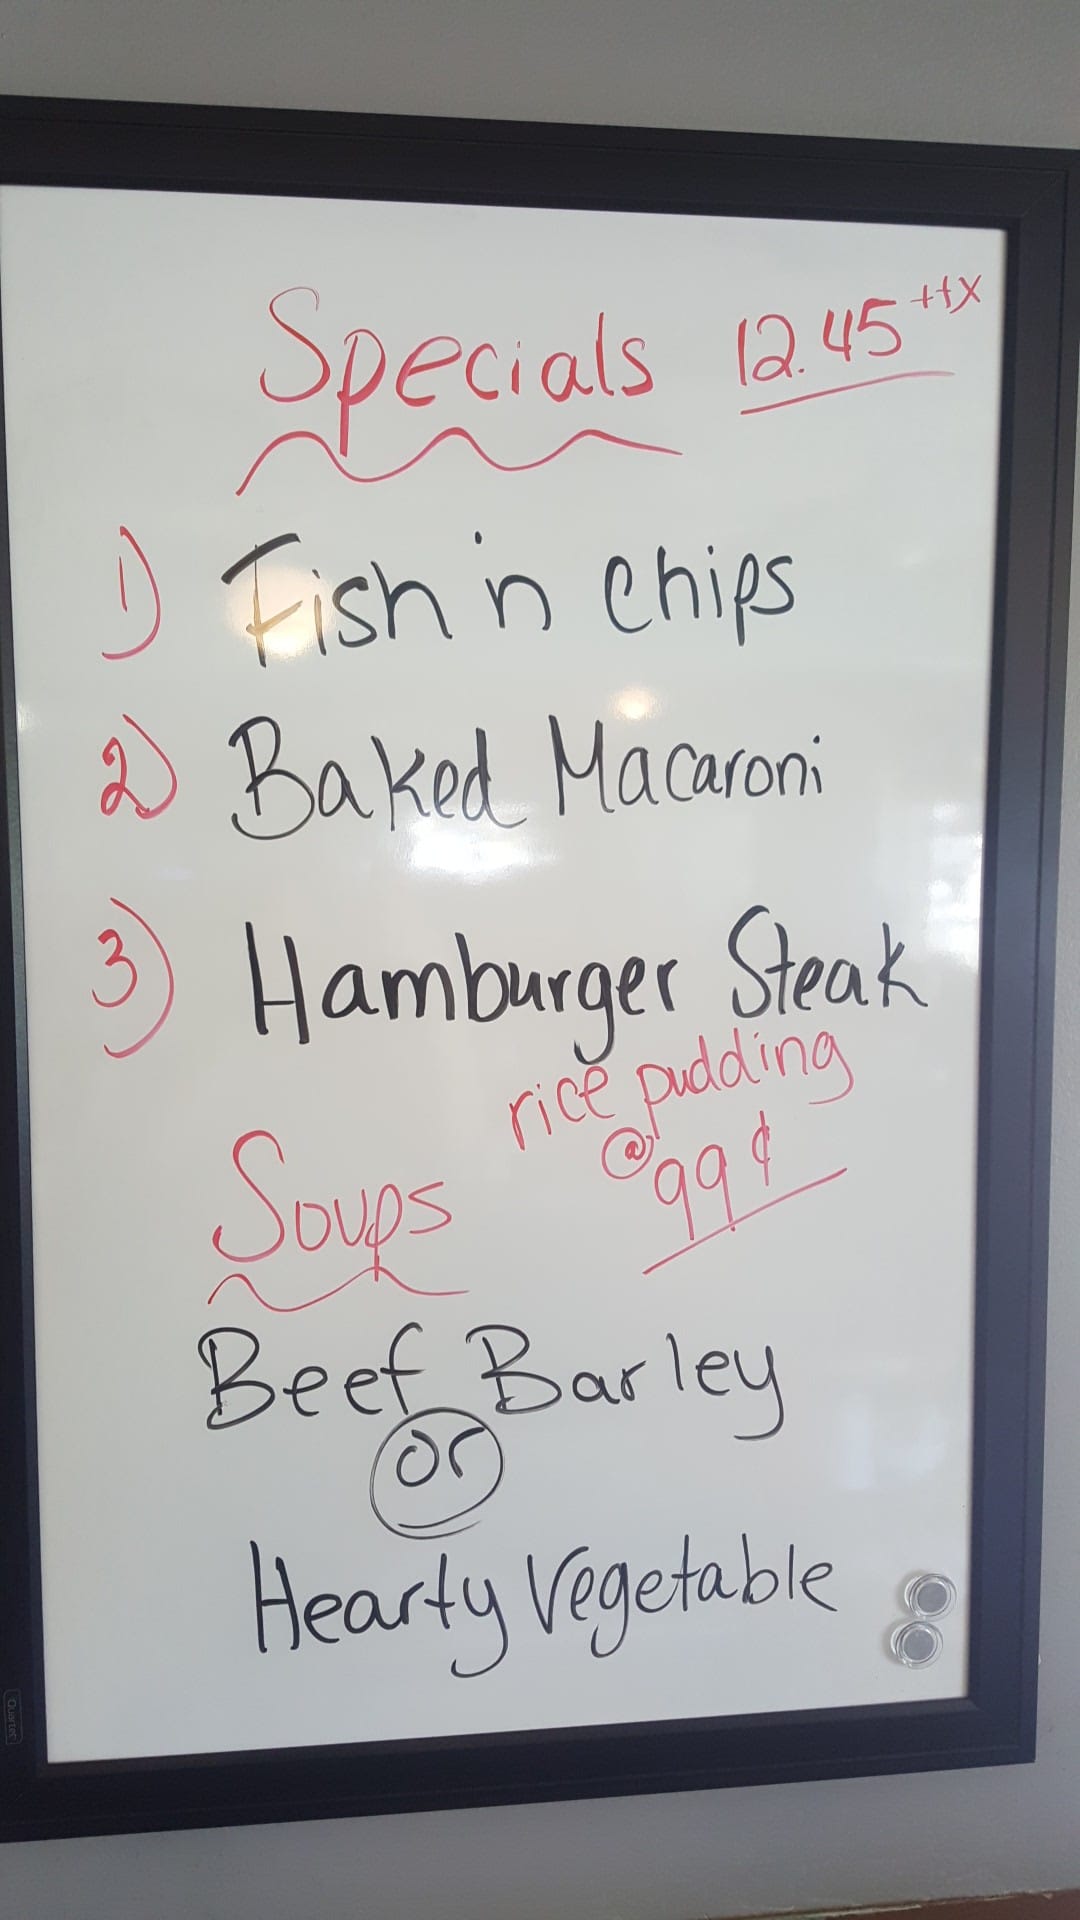 Specials 12.45 +tx
1) Fish 'n Chips
2) Baked Macaroni
3) Hamburger Steak
rice pudding
@ 99¢
Soups
Beef Barley
or
Hearty Vegetable
Quartet